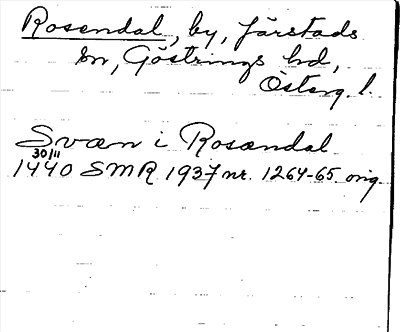 Rosendal, by, Järstads
sn, Göstrings hd,
Österg. l.
Svæn i Rosændal
30/11
1440 SMR 1937 nr. 1264-65 orig.